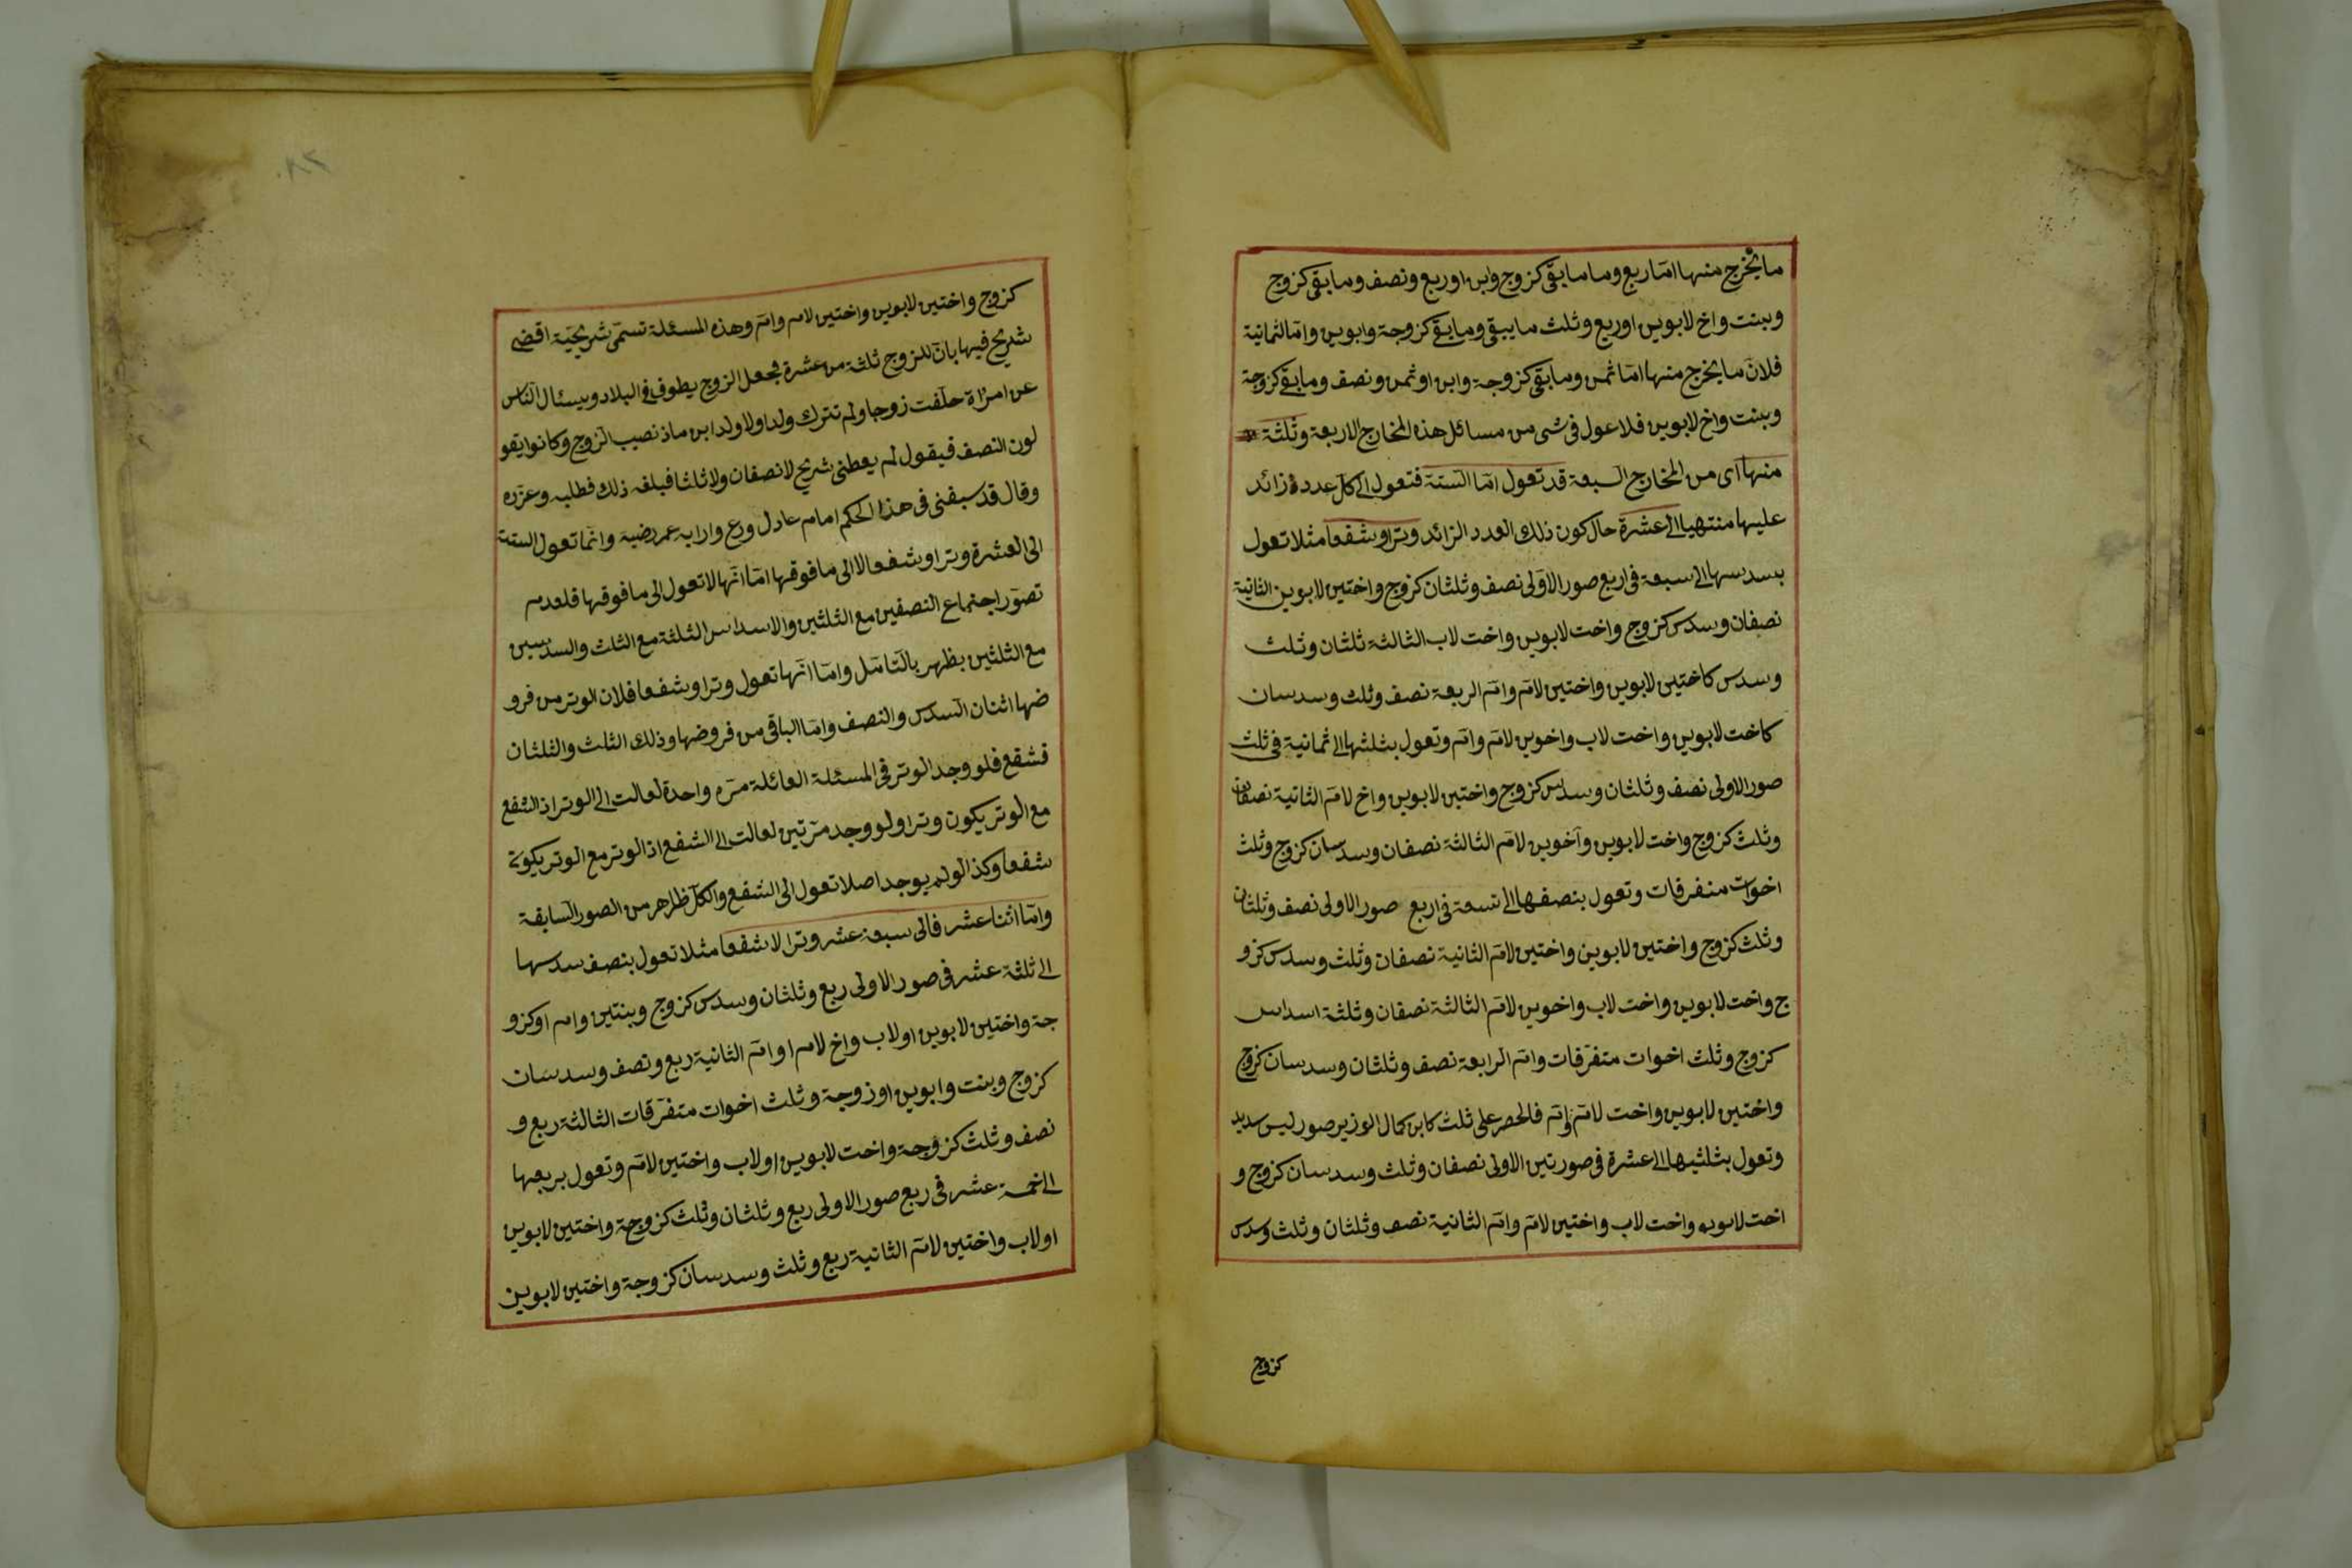 ما يخرج منها امّا ربع وما ما بقى كزوج وابن او ربع ونصف وما بقى كزوج
وبنت واخ لابوين او ربع وثلث ما يبقى وما بقى كزوجة وابوين وامّا الثمانية
فلانّ ما يخرج منها امّا ثمن وما بقى كزوجة وابن او ثمن ونصف وما بقى كزوجة
وبنت واخ لابوين فلا عول فى شئ من مسائل هذه المخارج الاربعة وثلثة
منها اى من المخارج السبعة قد تعول امّا الستة فتعول الى كل عدد زائد
عليها منتهيا الى عشرة حال كون ذلك العدد الزائد وترا وشفعا مثلا تعول
بسدسها الى سبعة فى اربع صور الاولى نصف وثلثان كزوج واختين لابوين الثانية
نصفان وسدس كزوج واخت لابوين واخت لاب الثالثة ثلثان وثلث
وسدس كاختين لابوين واختين لامّ وامّ الربعة نصف وثلث وسدسان
كاخت لابوين واخت لاب واخوين لامّ وامّ وتعول بثلثها الى ثمانية فى ثلث
صور الاولى نصف وثلثان وسدس كزوج واختين لابوين واخ لامّ الثانية نصفان
وثلث كزوج واخت لابوين وآخوين لامّ الثالثة نصفان وسدسان كزوج وثلث
اخوات متفرقات وتعول بنصفها الى تسعة فى اربع صور الاولى نصف وثلثان
وثلث كزوج واختين لابوين واختين لامّ الثانية نصفان وثلث وسدس كزو
ج واخت لابوين واخت لاب واخوين لامّ الثالثة نصفان وثلثة اسداس
كزوج وثلث اخوات متفرّقات وامّ الرابعة نصف وثلثان وسدسان كزوج
واختين لابوين واخت لامّ وامّ فالحصر على ثلث كابن كمال الوزير صور ليس سديد
وتعول بثلثيها الى عشرة فى صورتين الاولى نصفان وثلث وسدسان كزوج و
اخت لابوين واخت لاب واختين لامّ وامّ الثانية نصف وثلثان وثلث وسدس
كزوج
كزوج واختين لابوين واختين لام وامّ وهذه المسئلة تسمّى شريحيّة اقضى
شريح فيها بانّ للزوج ثلثة من عشرة فجعل الزوج يطوف فى البلاد ويسئال الناس
عن امراة حلّفت زوجا ولم تترك ولدا ولا ولد ابن ماذ نصيب الزوج وكانوا يقو
لون النصف فيقول لم يعطنى شريح لا نصفان ولا ثلثا فبلغه ذلك فطلبه وعزّره
وقال قد سبقنى فى هذا الحكم امام عادل ورع وارا به عمر رضيه وانّما تعول الستة
الى العشرة وترا وشفعا لا الى ما فوقها امّا انّها لا تعول الى ما فوقها فلعدم
تصوّر اجتماع النصفين مع الثلثين والاسداس الثلثة مع الثلث والسدسين
مع الثلثين بظهر بالتامّل وامّا انّها تعول وترا وشفعا فلان الوتر من فرو
ضها اثنان السدس والنصف وامّا الباقى من فروضها وذلك الثلث والثلثان
فشفع فلو وجد الوتر فى المسئلة العائلة مرّه واحدة لعالت الى الوتر اذ الشفع
مع الوتر يكون وترا ولو وجد مرّتين لعالت الى الشفع اذ الوتر مع الوتر يكون
شفعا وكذا لو لم يوجد اصلا تعول الى الشفع والكلّ ظاهر من الصور السابقة
وامّا اثنا عشر فالى سبعة عشر وترا لا شفعا مثلا تعول بنصف سدسها
الى ثلثة عشر فى صور الاولى ربع وثلثان وسدس كزوج وبنتين وام او كزو
جة واختين لابوين او لاب واخ لام او امّ الثانية ربع ونصف وسدسان
كزوج وبنت وابوين او زوجة وثلث اخوات متفرّقات الثالثة ربع و
نصف وثلث كزوجة واخت لابوين او لاب واختين لامّ وتعول بربعها
الى خمسة عشر فى ربع صور الاولى ربع وثلثان وثلث كزوجة واختين لابوين
او لاب واختين لامّ الثانية ربع وثلث وسدسان كزوجة واختين لابوين